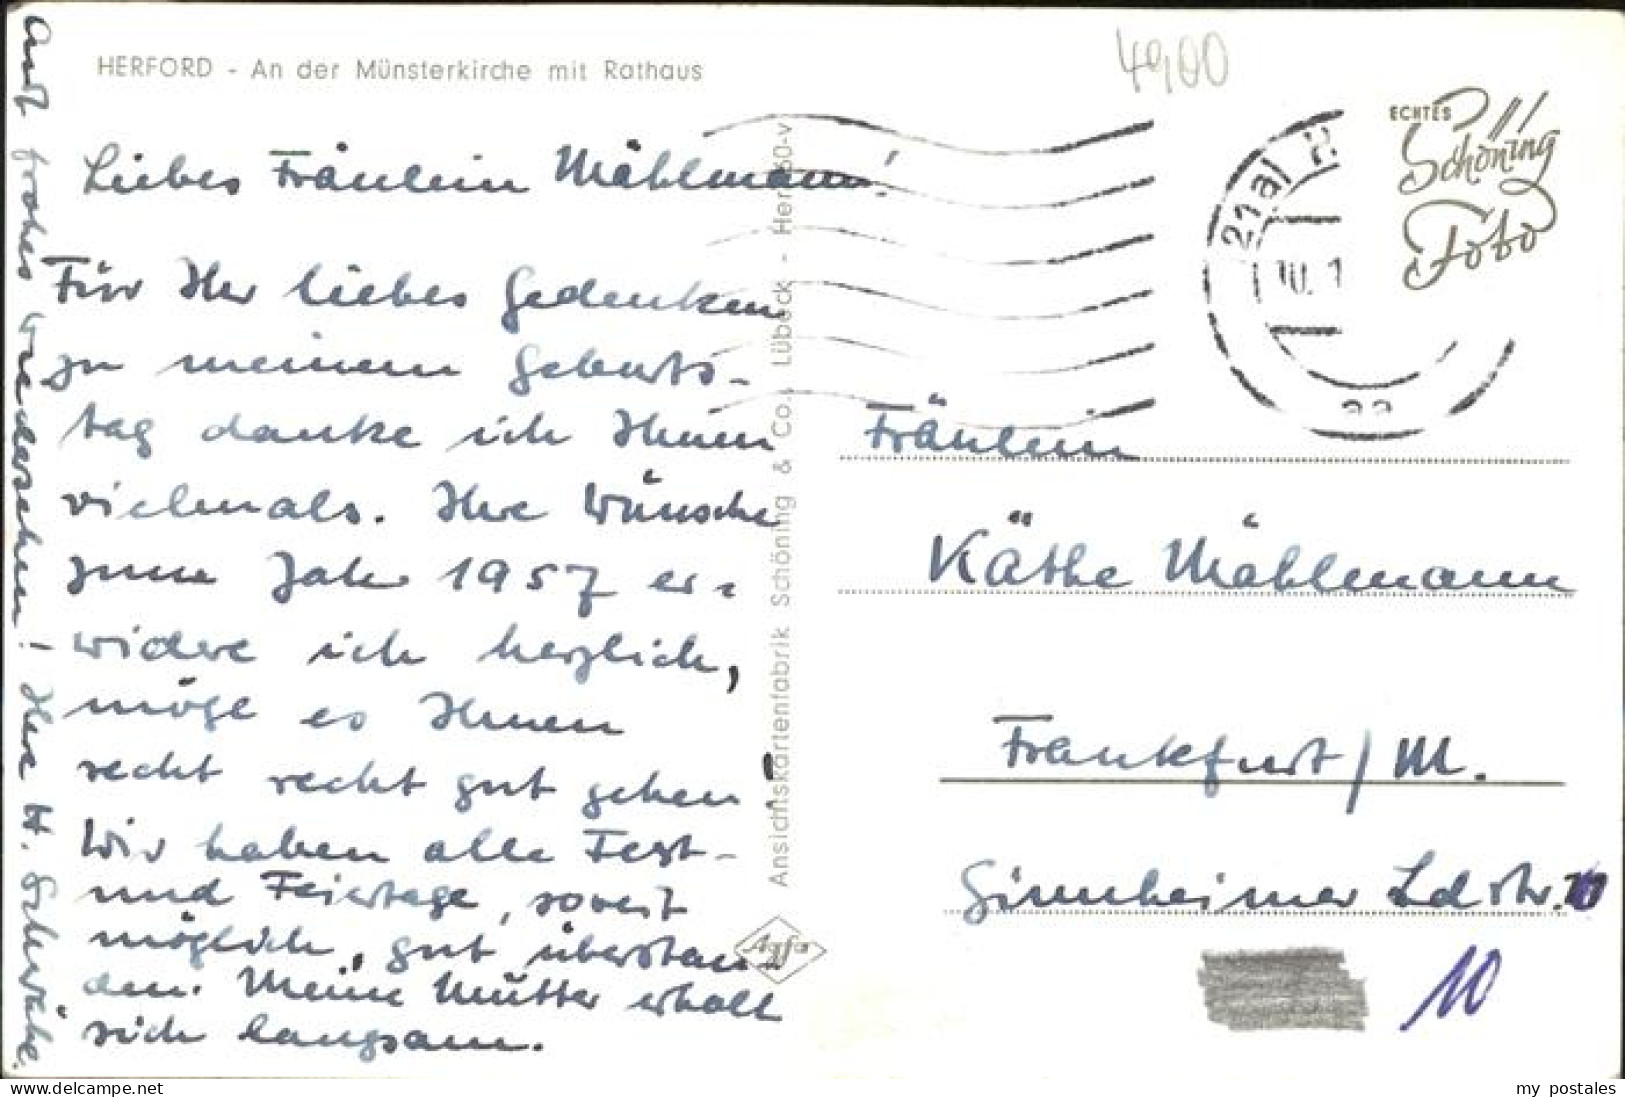 HERFORD - An der Münsterkirche mit Rathaus
4900
Liebes Fräulein Mählmann!
Für Ihr liebes Gedenken
zu meinem Geburts-
tag danke ich Ihnen
vielmals. Ihre Wünsche
zum Jahr 1957 er-
widere ich herzlich,
möge es Ihnen
recht recht gut gehen
Wir haben alle Fest-
und Feiertage, soweit
möglich, gut überstan-
den. Meine Mutter erholt
sich langsam.
Auf frohes Wiedersehen! Ihre H. Schwake.
Ansichtskartenfabrik Schöning & Co., Lübeck - Her 60-v
Agfa
ECHTES
Schöning
Foto
21a
10.1
Fräulein
Käthe Mählmann
Frankfurt/M.
Ginnheimer Ldstr.
10
delcampe.net
my_postales